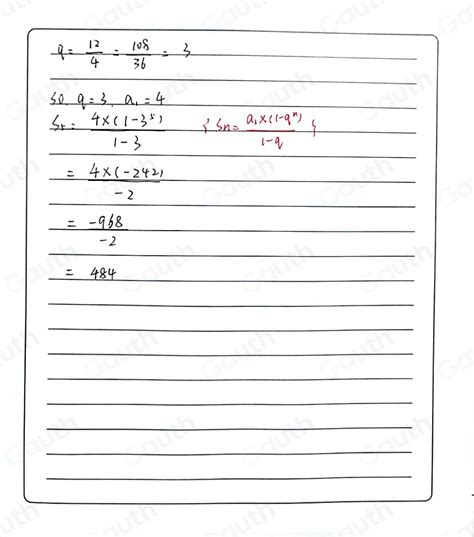 q = 12/4 = 108/36 = 3
so q=3, a₁=4
S₅ = 4×(1-3⁵)/1-3 { Sn = a₁×(1-qⁿ)/1-q }
= 4×(-242)/-2
= -968/-2
= 484